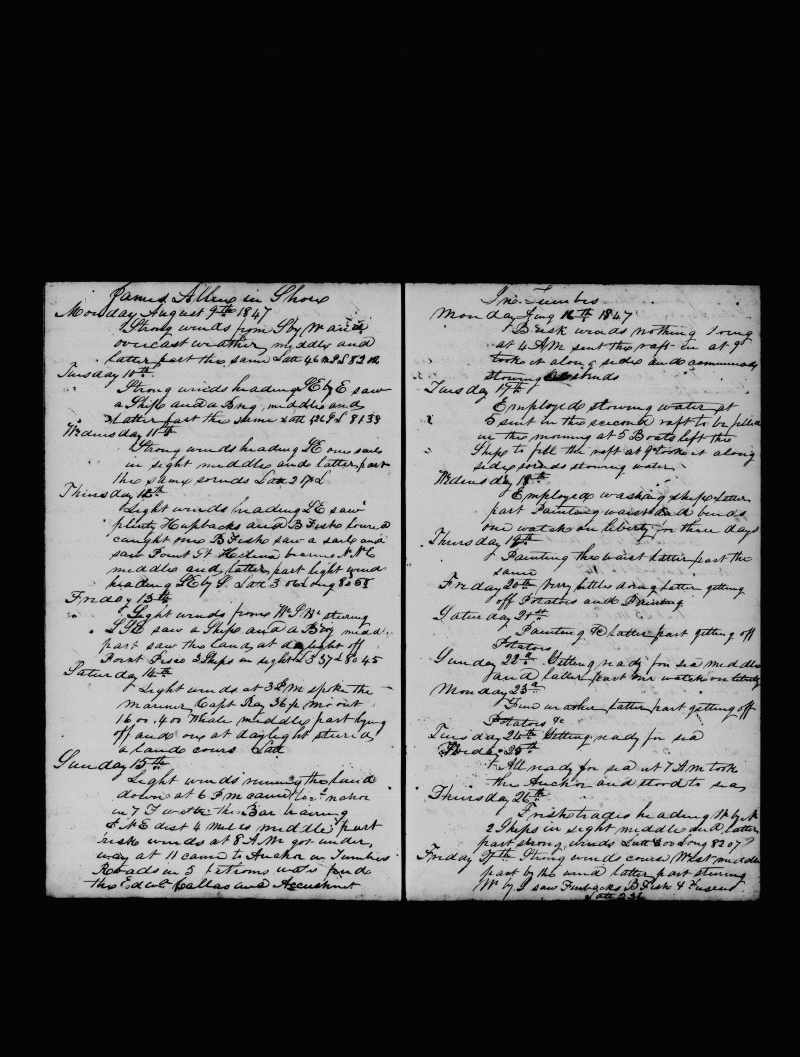 James Allen in Shore
Monday August 9th 1847
Strong winds from S by W and
overcast weather middle and
latter part the same Latt
Tuesday 10th
Strong winds heading SE by E saw
a Ship and a Brig middle and
latter part the same Latt
Wednesday 11th
Strong winds heading SE one sail
in sight middle and latter part
the same winds Latt
Thursday 12th
Light winds heading SE saw
plenty Humpbacks and B Fish
caught one B Fish saw a sail and
saw Point St Helena bearing
middle and latter part light wind
heading SE by S Latt 3 06 Long 80 58
Friday 13th
Light winds from steering
SSE saw a Ship and a Brig midd
part saw the land at daylight off
Point Pisco 3 Ships in sight L 3 37 - 80 45
Saturday 14th
Light winds at 3 PM spoke the
Mariner Capt Ray 36 mo out
1600 400 Whale middle part lying
off and on at daylight steering
a land cours Latt
Sunday 15th
Light winds running the land
down at 6 PM came to anchor
in 7 F water the Bar bearing
NE dist 4 miles middle part
brisk winds at 8 AM got under
way at 11 came to Anchor in Tumbes
Roads in 5
the Callao and Accushnet
In Tumbes
Monday Aug 16th 1847
Brisk winds nothing doing
at 4 AM sent the raft in at 9
took it along side and commenced
stowing
Tuesday 17th
Employed stowing water at
5 sent in the second raft to be filled
in the morning at 5 Boats left the
Ship to fill the raft at 9 took it along
side stowing water
Wednesday 18th
Employed washing ship latter
part Painting waist and bends
one watch on liberty for three days
Thursday 19th
Painting the waist latter part the
same
Friday 20th Very little doing latter getting
off Potatoes and Painting
Saturday 21st
Painting &c latter part getting off
Potatoes
Sunday 22d Getting ready for sea middle
and latter part one watch on liberty
Monday 23d
Fine weather latter part getting off
Potatoes &c
Tuesday 24th Getting ready for sea
25th
All ready for sea at 7 AM took
the Anchor and stood to sea
Thursday 26th
Brisk trades heading W by N
2 Ships in sight middle and latter
part strong winds Latt Long 82 07
Friday 27th Strong winds course West middle
part by the wind latter part steering
W by S saw Finbacks B Fish &
Latt 2 36